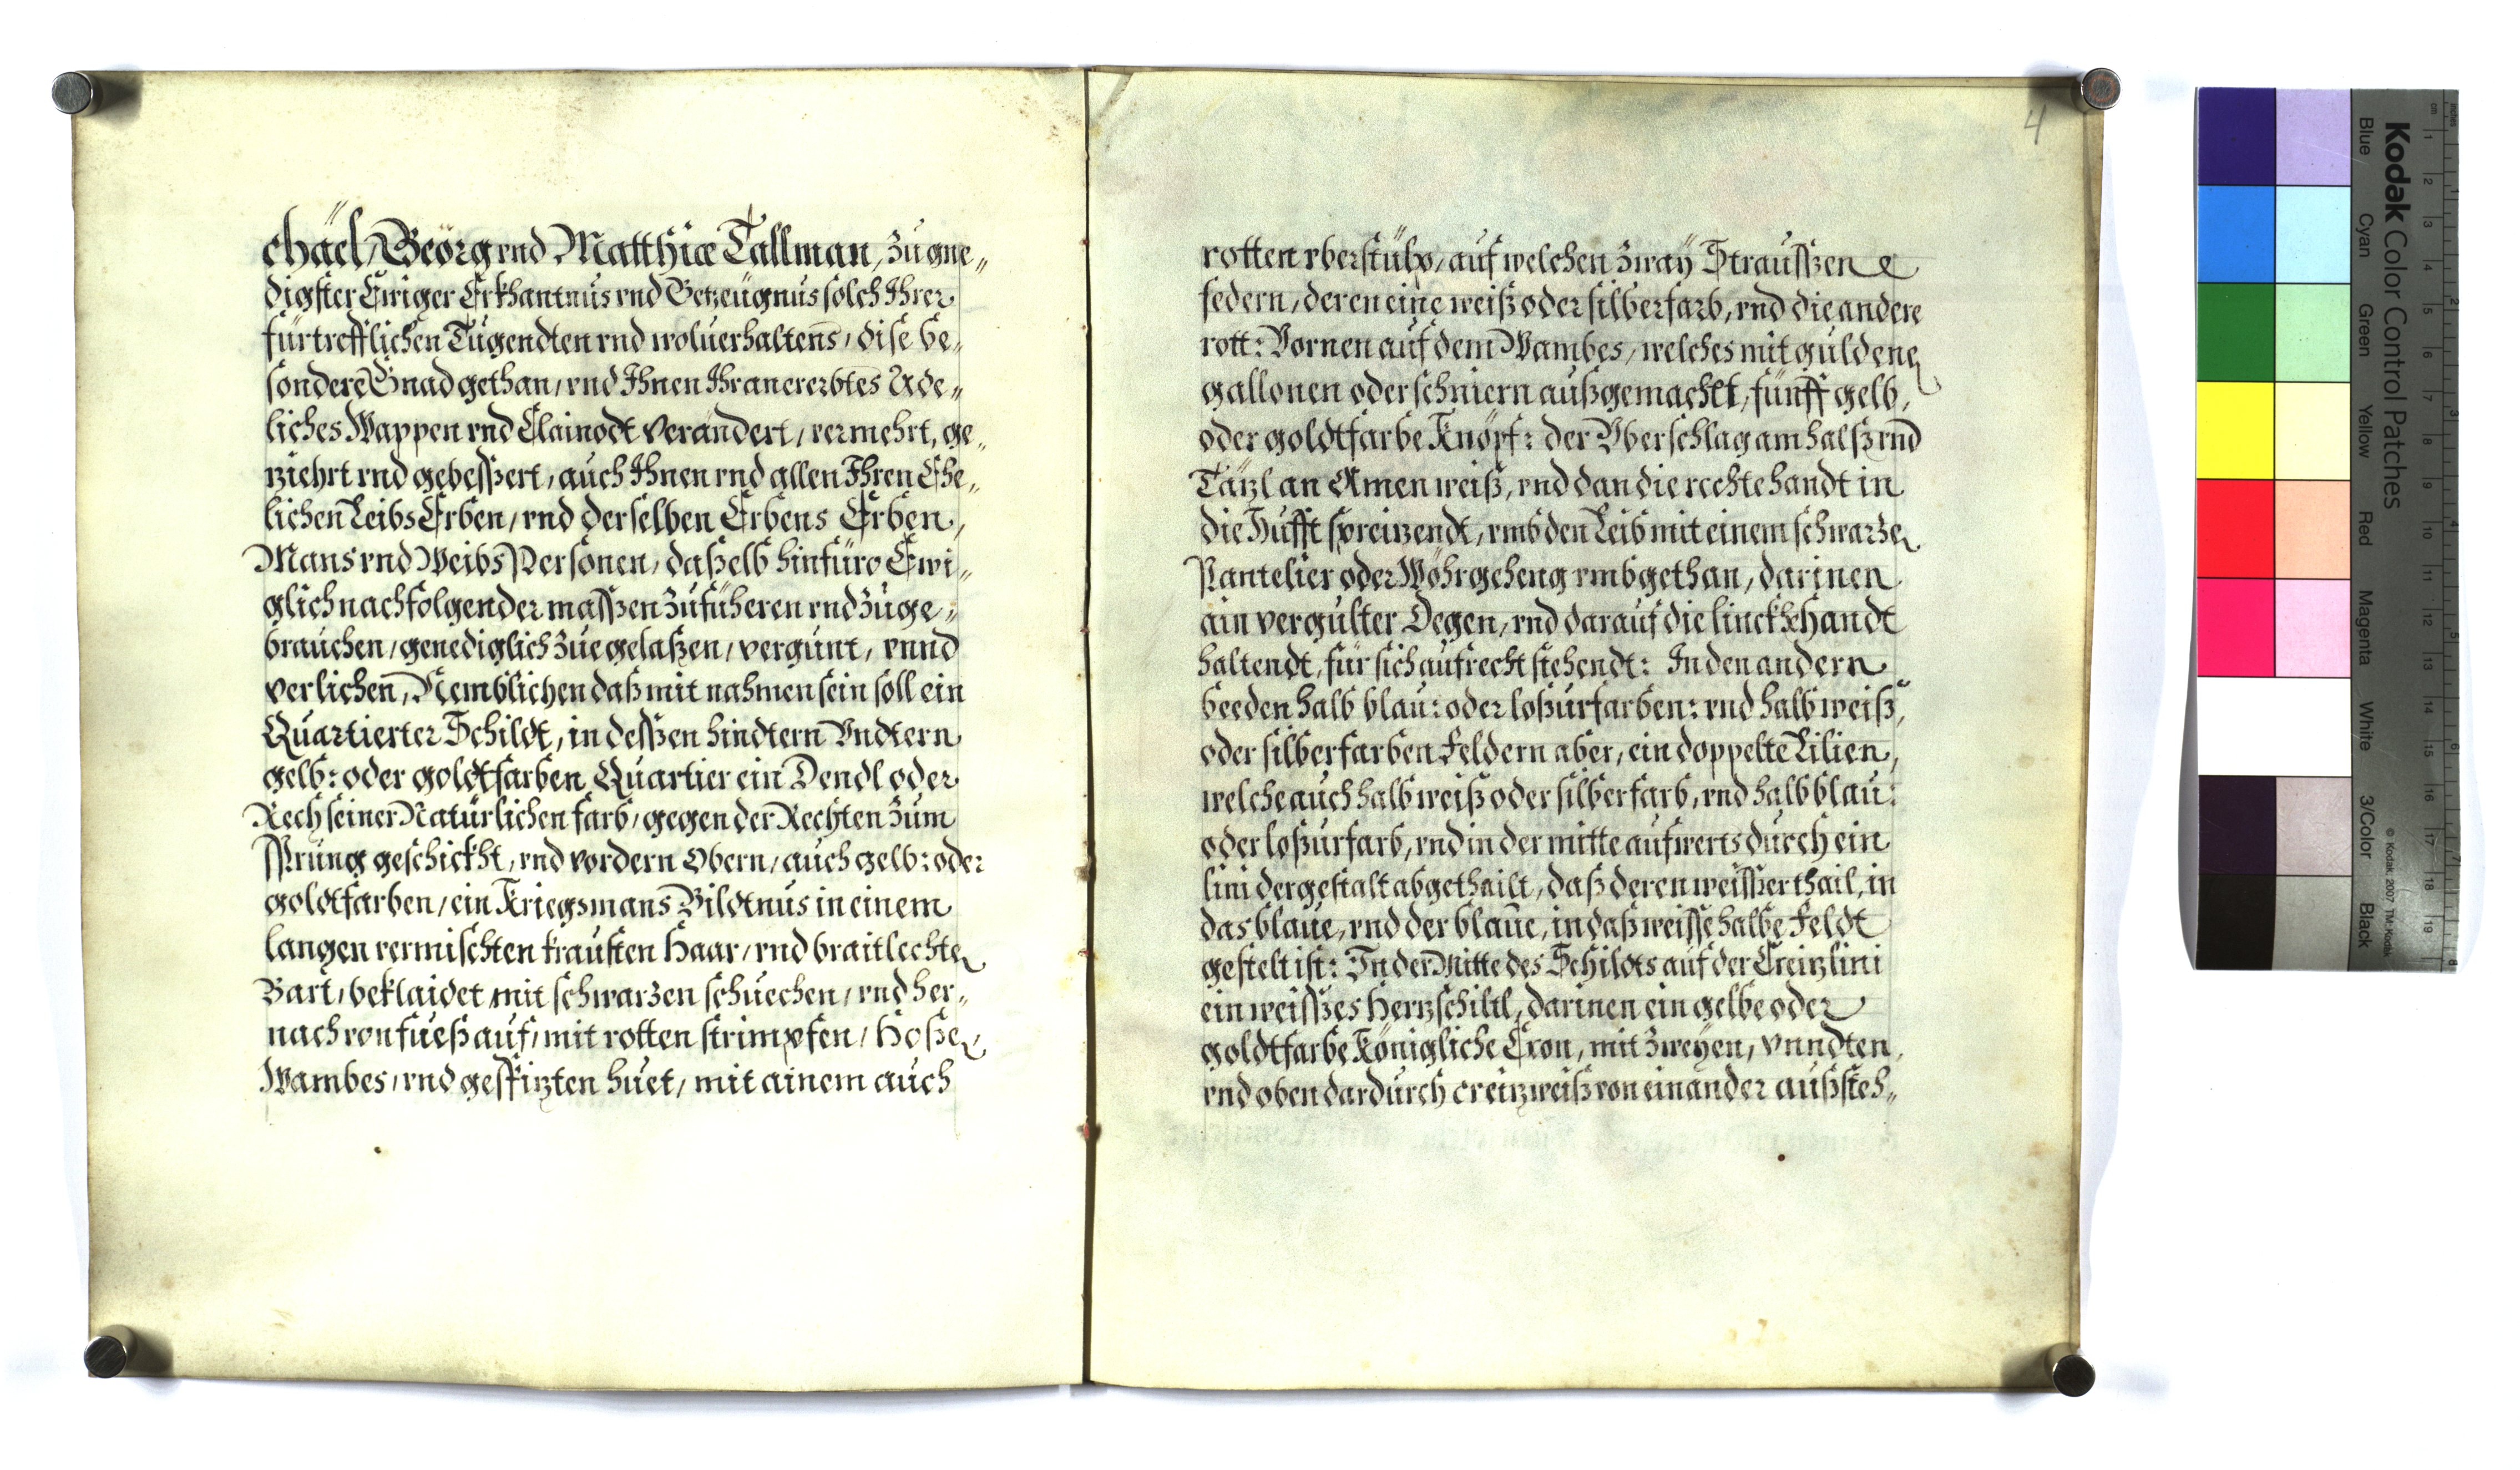 chäel, Geörg vnd Matthiæ Tallman, zu gne„
digster Ewiger Erkhantnus vnd Getzeügnus solch Ihrer
fürtrefflichen Tugendten vnd woluerhaltens, dise be„
sondere Gnad gethan, vnd Ihnen Ihr anererbtes Ade„
liches Wappen vnd Clainodt verändert, vermehrt, ge„
ziehrt vnd gebessert, auch Ihnen vnd allen Ihren Ehe„
lichen Leibs Erben, vnd derselben Erbens Erben,
Mans vnd Weibs Personen, daßelb hinfüro Ewi„
glich nachfolgender massen zufüheren vnd zuge„
brauchen, genediglich zue gelaßen, vergunt, vnnd
verlichen, Nemblichen daß mit nahmen sein soll ein
Quartierter Schildt, in deßen hindtern Vndtern
gelb: oder goldtfarben Quartier ein Dendl oder
Rech seiner Natürlichen farb, gegen der Rechten zum
Sprung geschickht, vnd vordern Obern, auch gelb: oder
goldtfarben, ein Kriegsmans Bildtnus in einem
langen vermischten krausten Haar, vnd braitlechten
Bart, beklaidet mit schwarzen schuechen, vnd her„
nach von fueß auf, mit rotten strimpfen, Hoßen,
Wambes, vnd gespitzten huet, mit ainem auch
4
rotten vberstülp, auf welchen zway Straussen
federn, deren eine weiß oder silberfarb, vnd die andere
rott: Vornen auf dem Wambes, welches mit gulden
gallonen oder schniern außgemacht, fünff gelb,
oder goldtfarbe Knöpf: der Vberschlag am halß vnd
Täzl an Armen weiß, vnd dan die rechte handt in
die Hufft spreizendt, vmb den Leib mit einem schwarzen
Pantelier oder Wöhrgeheng vmbgethan, darinen
ain vergulter Degen, vnd darauf die linckhe Handt
haltendt, für sich aufrecht stehendt: In den andern
beeden halb blau: oder loßurfarben: vnd halb weiß,
oder silberfarben Feldern aber, ein doppelte Lilien,
welche auch halb weiß oder silberfarb, vnd halb blau:
oder loßurfarb, vnd in der mitte aufwerts durch ein
lini dergestalt abgetheilt, daß deren weisser thail, in
das blaue, vnd der blaue, in daß weisse halbe Feldt
gestelt ist: In der Mitte des Schildts auf der Creitzlini
ein weisses Hertzschiltl, darinen ein gelbe oder
goldtfarbe Königliche Cron, mit zweyen, vnndten
vnd oben dardurch creitzweiß von einander außsteh„
Kodak Color Control Patches
Blue Cyan Green Yellow Red Magenta White 3/Color Black
© Kodak, 2007 TM: Kodak